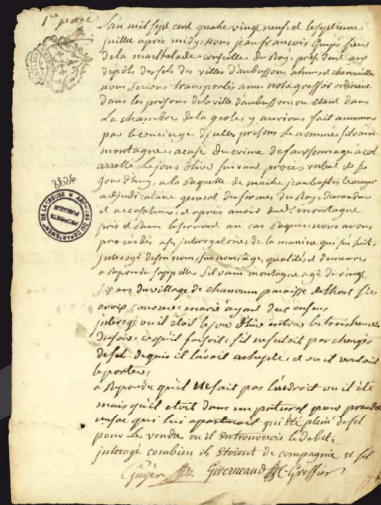 1re page
L'an mil sept cent quatre vingt neuf et le septieme
juillet après midy, Nous jean françois
de la marhalade conseiller du Roy, president aux
depôts des sels des villes d'aubusson ahun et chenerailles
nous serions transportés avec notre greffier ordinaire
dans les prisons de la ville d'aubusson ou etant dans
la chambre de la geole, y aurions fait
par le concierge des dites prisons le nommé silvain
montagne, accusé du crime de fauxsaunage a col
arretté le jour d'hier suivant procès verbal de ce
jourdhuy, a la requette de maitre jean baptiste
adjudicataire general des fermes du Roy, demandeur
et accusateur, et après avoir du dit montagne
pris et serment au cas requis nous avons
procédés a son interrogatoire de la maniere qui suit,
interrogé de son nom surnom age, qualités, et demeure
a Repondu s'appeller Silvain montagne agé de vingt
six ans du village de chanoum paroisse de
avoir marié ayant deux enfans
interogé ou il étoit le jour d'hier entre les trois heures
du soir, ce qu'il faisoit, s'il n'étoit pas chargé
de sel de qui il l'avoit achepté, et ou il vouloit
le porter,
a Repondu qu'il ne sait pas l'endroit ou il été
mais qu'il étoit dans un patural pour prendre
un sac qui lui apartenoit qui été plein de sel
pour le vendre ou il en trouveroit le debit,
interogé combien ils étoient de compagnie et sil
Giverneaud C. Greffier
ARCHIVES DU DEPARTEMENT DE LA CREUSE
PROPRIÉTÉ PUBLIQUE